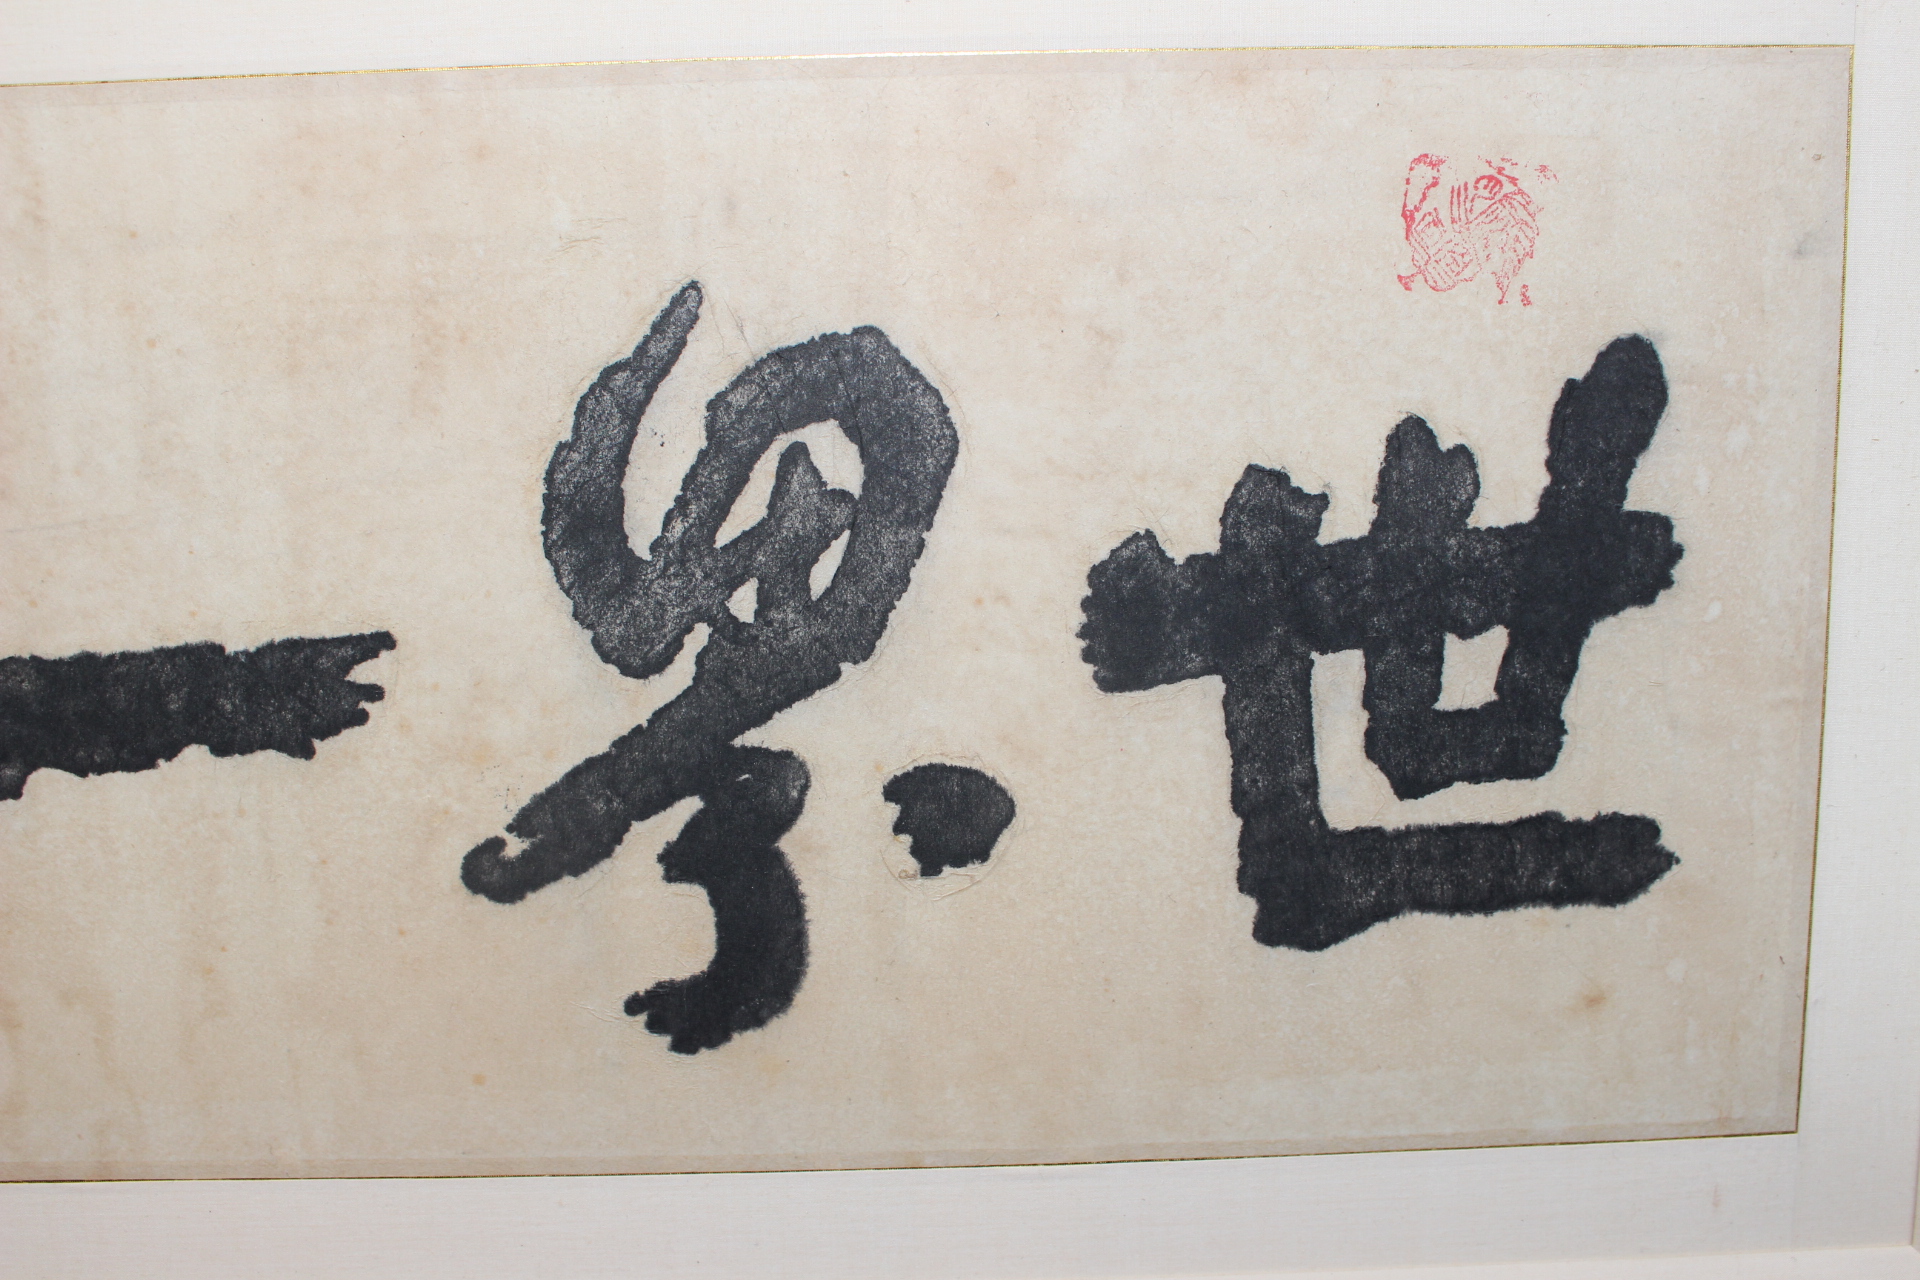 世界一